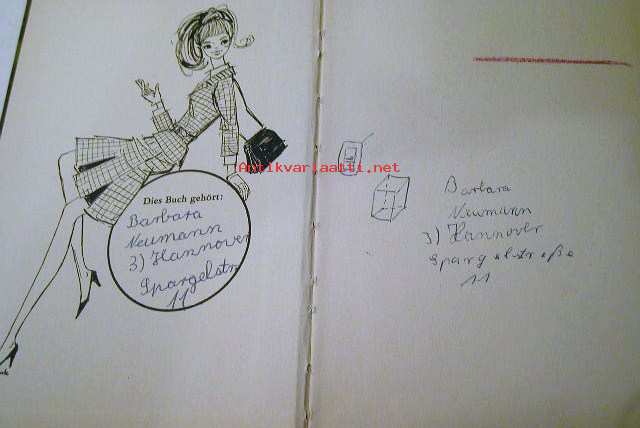 Dies Buch gehört:
Barbara
Neumann
3) Hannover
Spargelstr
11
Antikvariaatti.net
Barbara
Neumann
3) Hannover
Spargelstraße
11